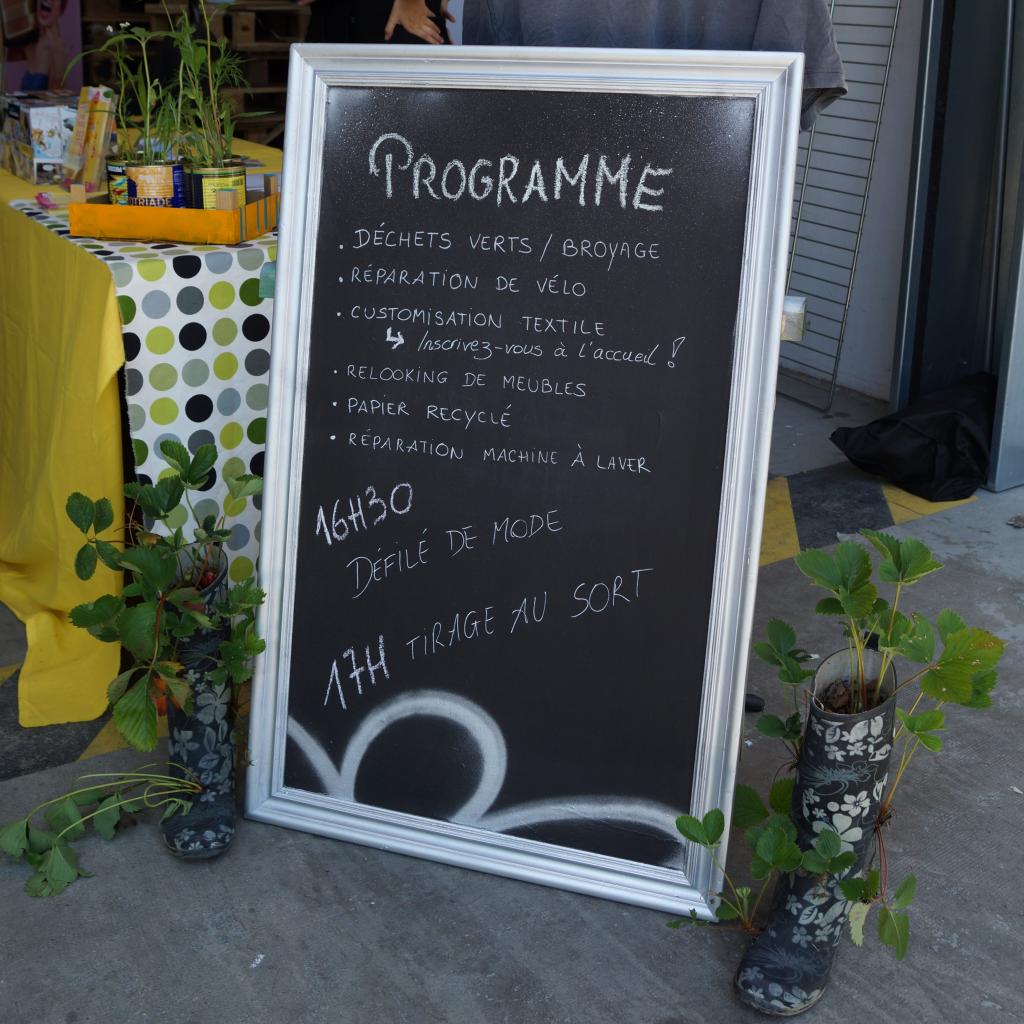 TRIADE
PROGRAMME
. DÉCHETS VERTS / BROYAGE
. RÉPARATION DE VÉLO
. CUSTOMISATION TEXTILE
↳ Inscrivez-vous à l'accueil !
. RELOOKING DE MEUBLES
. PAPIER RECYCLÉ
. RÉPARATION MACHINE À LAVER
16H30
DÉFILÉ DE MODE
17H TIRAGE AU SORT